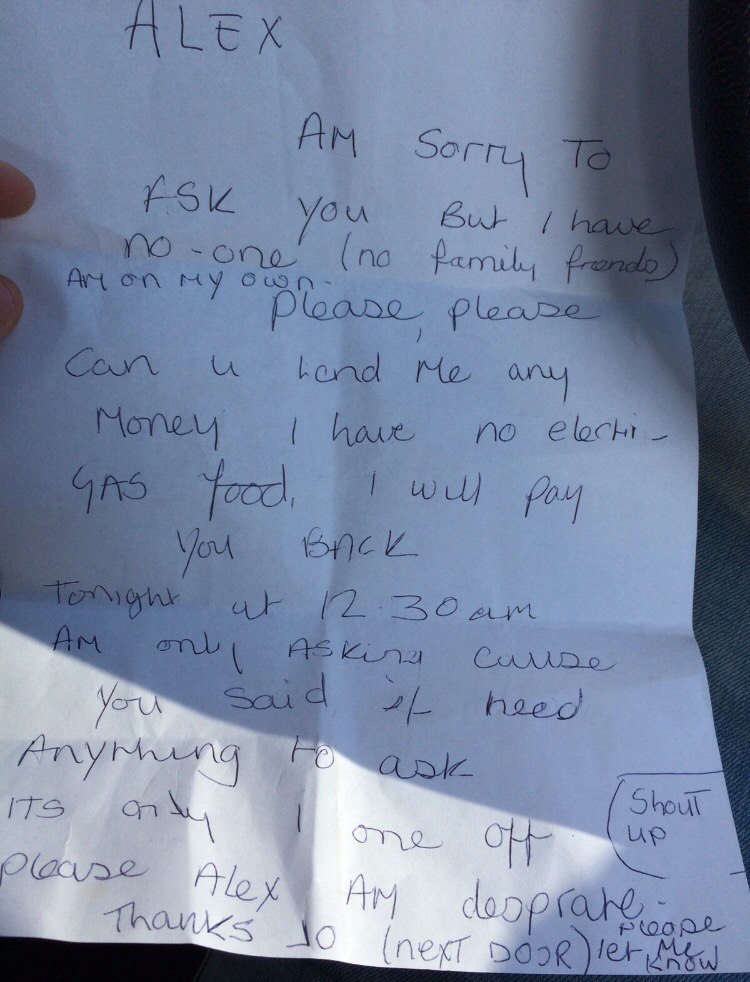 ALEX
AM Sorry To
ASK you But I have
no-one (no family frends)
AM on my own.
please, please
Can u lend Me any
Money I have no electri-
GAS food, I will pay
you BACK
Tonight at 12.30am
AM only ASKing cause
you said if need
Anything to ask
ITS only 1 one off
(Shout
up
please Alex AM desprate.
Thanks Jo (next DOOR) please
let Me
know